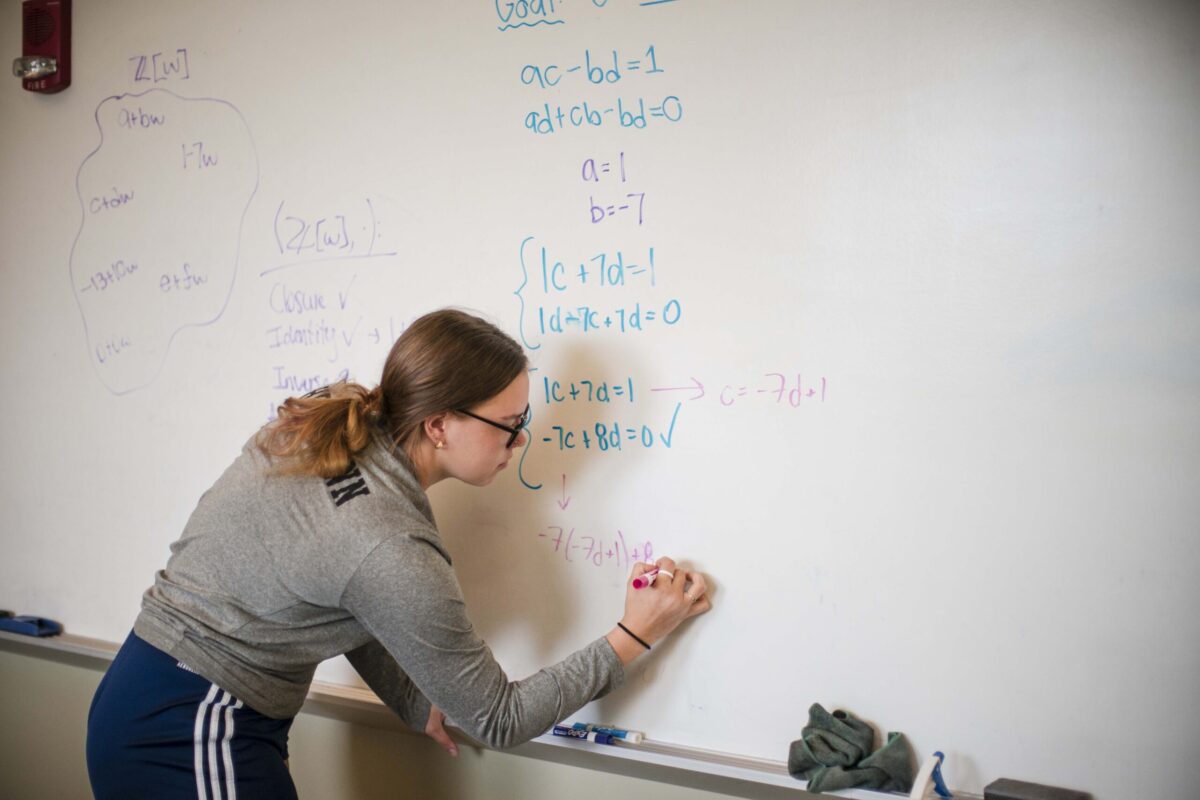 FIRE
ℤ[w]
a+bw
1-7w
c+dw
-13+10w
e+fw
(ℤ[w], ·):
Closure ✓
Identity ✓ →
Inverse
Goal:
ac-bd=1
ad+cb-bd=0
a=1
b=-7
1c+7d=1
1d-7c+7d=0
1c+7d=1 → c=-7d+1
-7c+8d=0 ✓
-7(-7d+1)+8